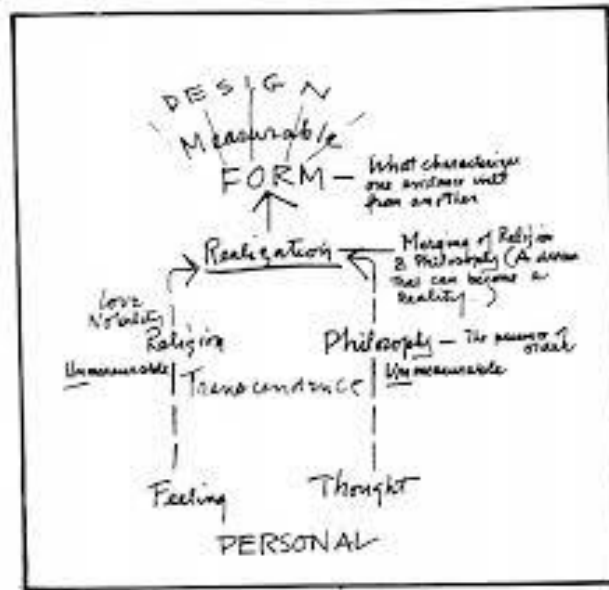 DESIGN
Measurable
FORM — What characterizes
one existence will
from another
Realization — Merging of Religion
& Philosophy (A dream
that can become a
Reality)
Love
Nobility
Religion
Philosophy — The presence of
order
Unmeasurable
Transcendence
Unmeasurable
Feeling
Thought
PERSONAL